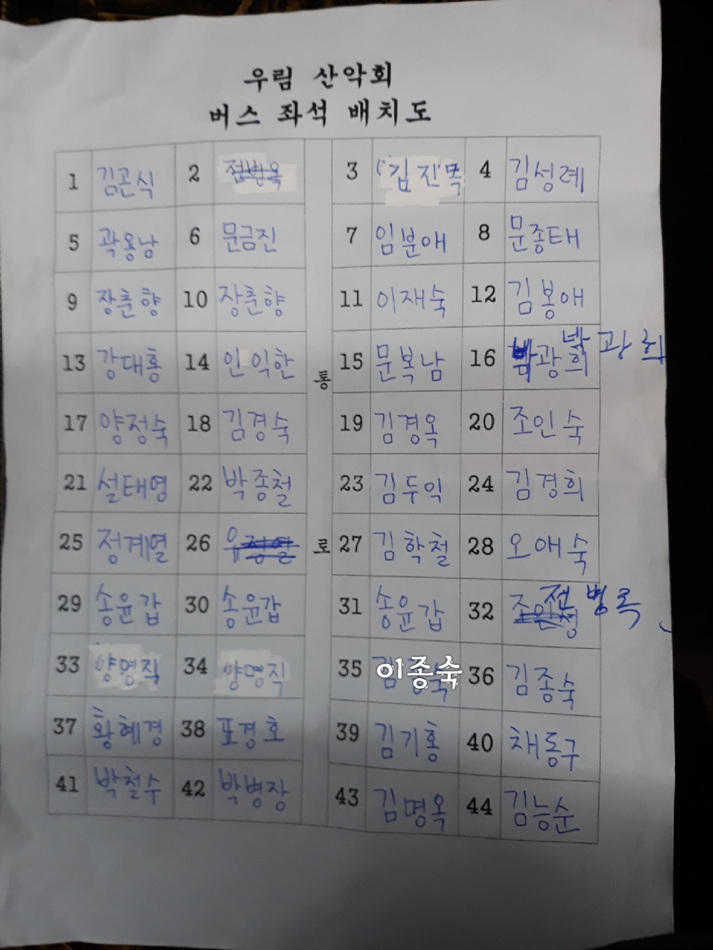 우림 산악회
버스 좌석 배치도
1 김곤식 2 전병옥 3 김진목 4 김성례
5 곽용남 6 문금진 7 임분애 8 문종태
9 장춘향 10 장춘향 11 이재숙 12 김봉애
13 강대홍 14 인익한 15 문복남 16 박광희 박광희
통
17 양정숙 18 김경숙 19 김경옥 20 조인숙
21 설태영 22 박종철 23 김두익 24 김경희
25 정계열 26 로 27 김학철 28 오애숙
29 송윤갑 30 송윤갑 31 송윤갑 32 전병옥
33 양명직 34 양명직 35 이종숙 36 김종숙
37 황혜경 38 표경호 39 김기홍 40 채동구
41 박철수 42 박병장 43 김명옥 44 김능순